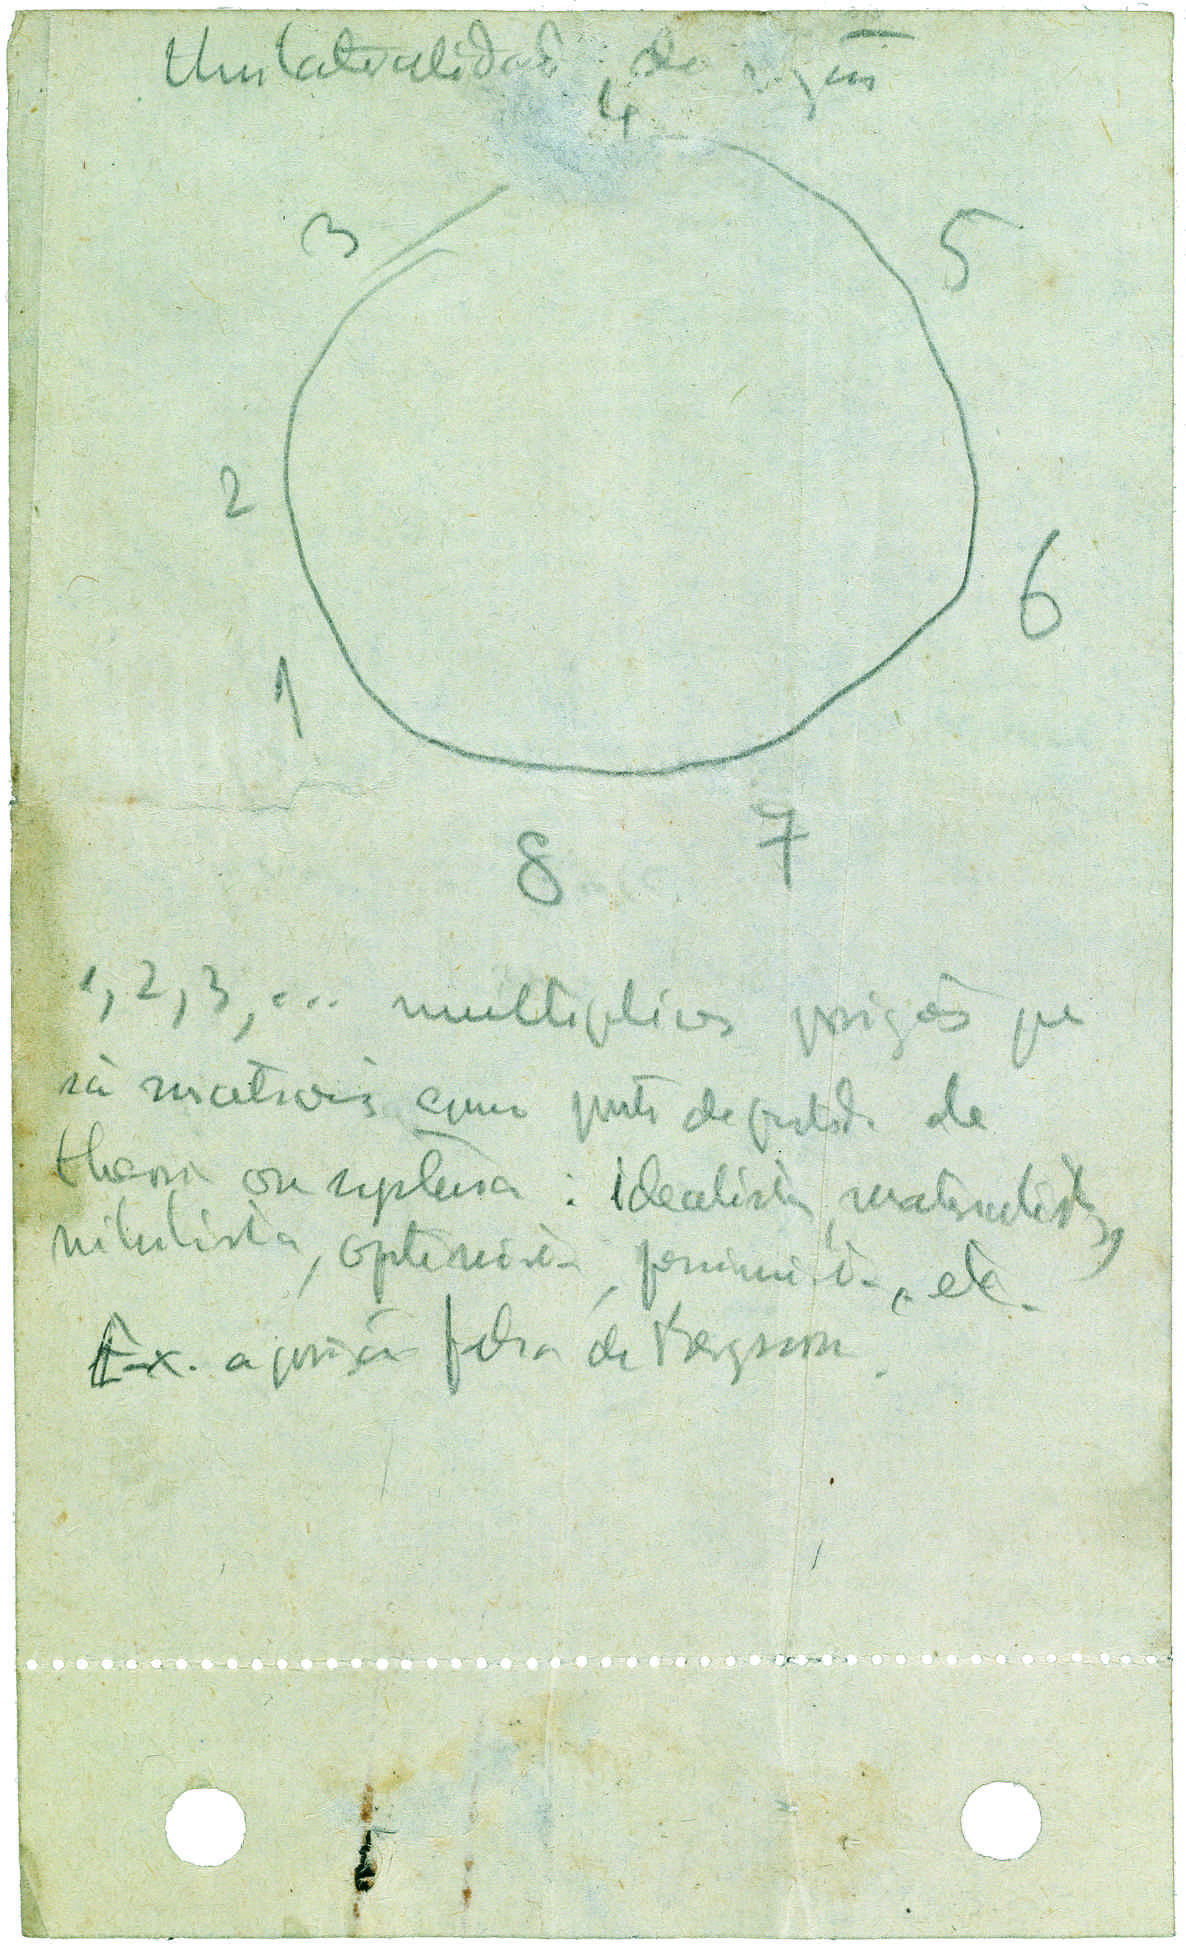 Unilateralidade da
4
3
5
2
6
1
7
8
1, 2, 3, ... multiplices posições que
são como ponto de partida de
theoria ou systema : idealista, materialista,
nihilista, optimista, pessimista, etc.
Ex. a posição de Bergson.